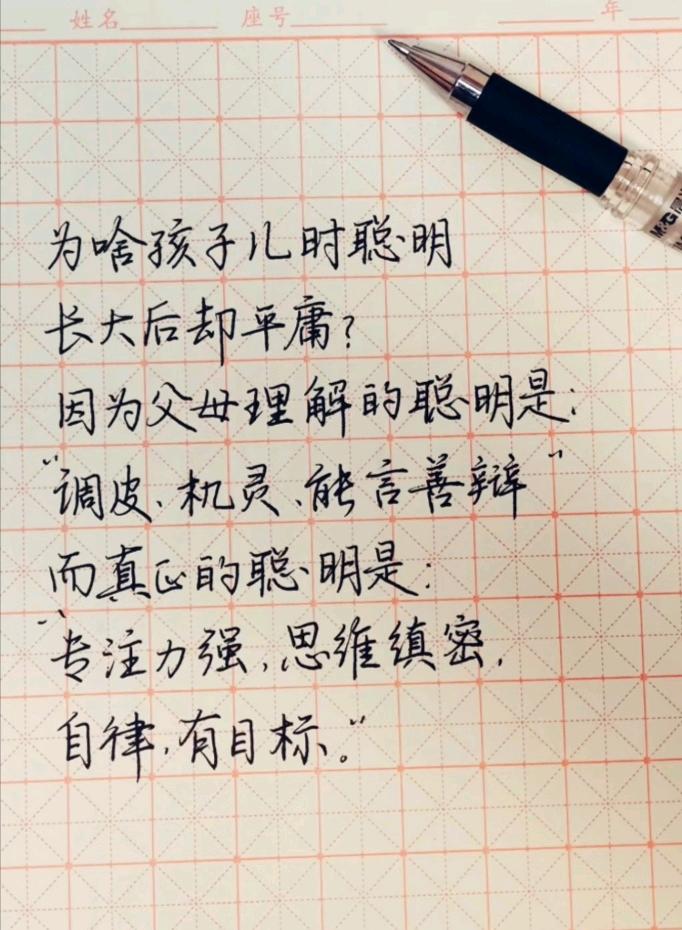 姓名 座号 年
为啥孩子儿时聪明
长大后却平庸?
因为父母理解的聪明是:
“调皮、机灵、能言善辩”
而真正的聪明是:
“专注力强,思维缜密,
自律,有目标。”
M&G